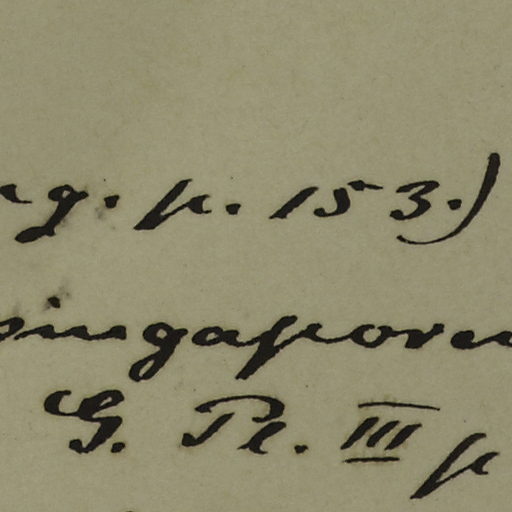 g. p. 153.)
singapore
G. Pl. III p